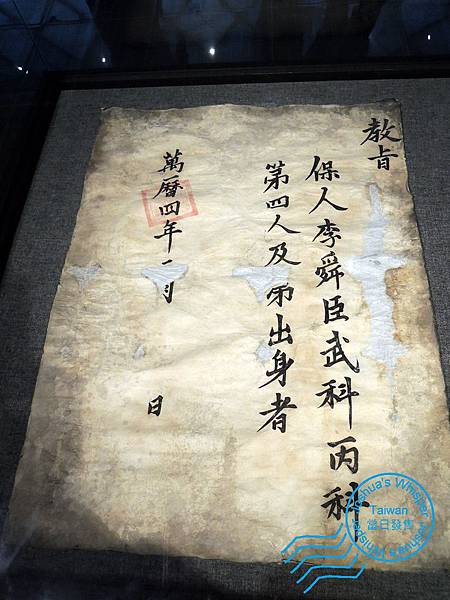 教旨
保人李舜臣武科丙科
第四人及第出身者
萬曆四年 月 日
Joshua's Whisper
Taiwan
當日發售
Joshua's Whisper